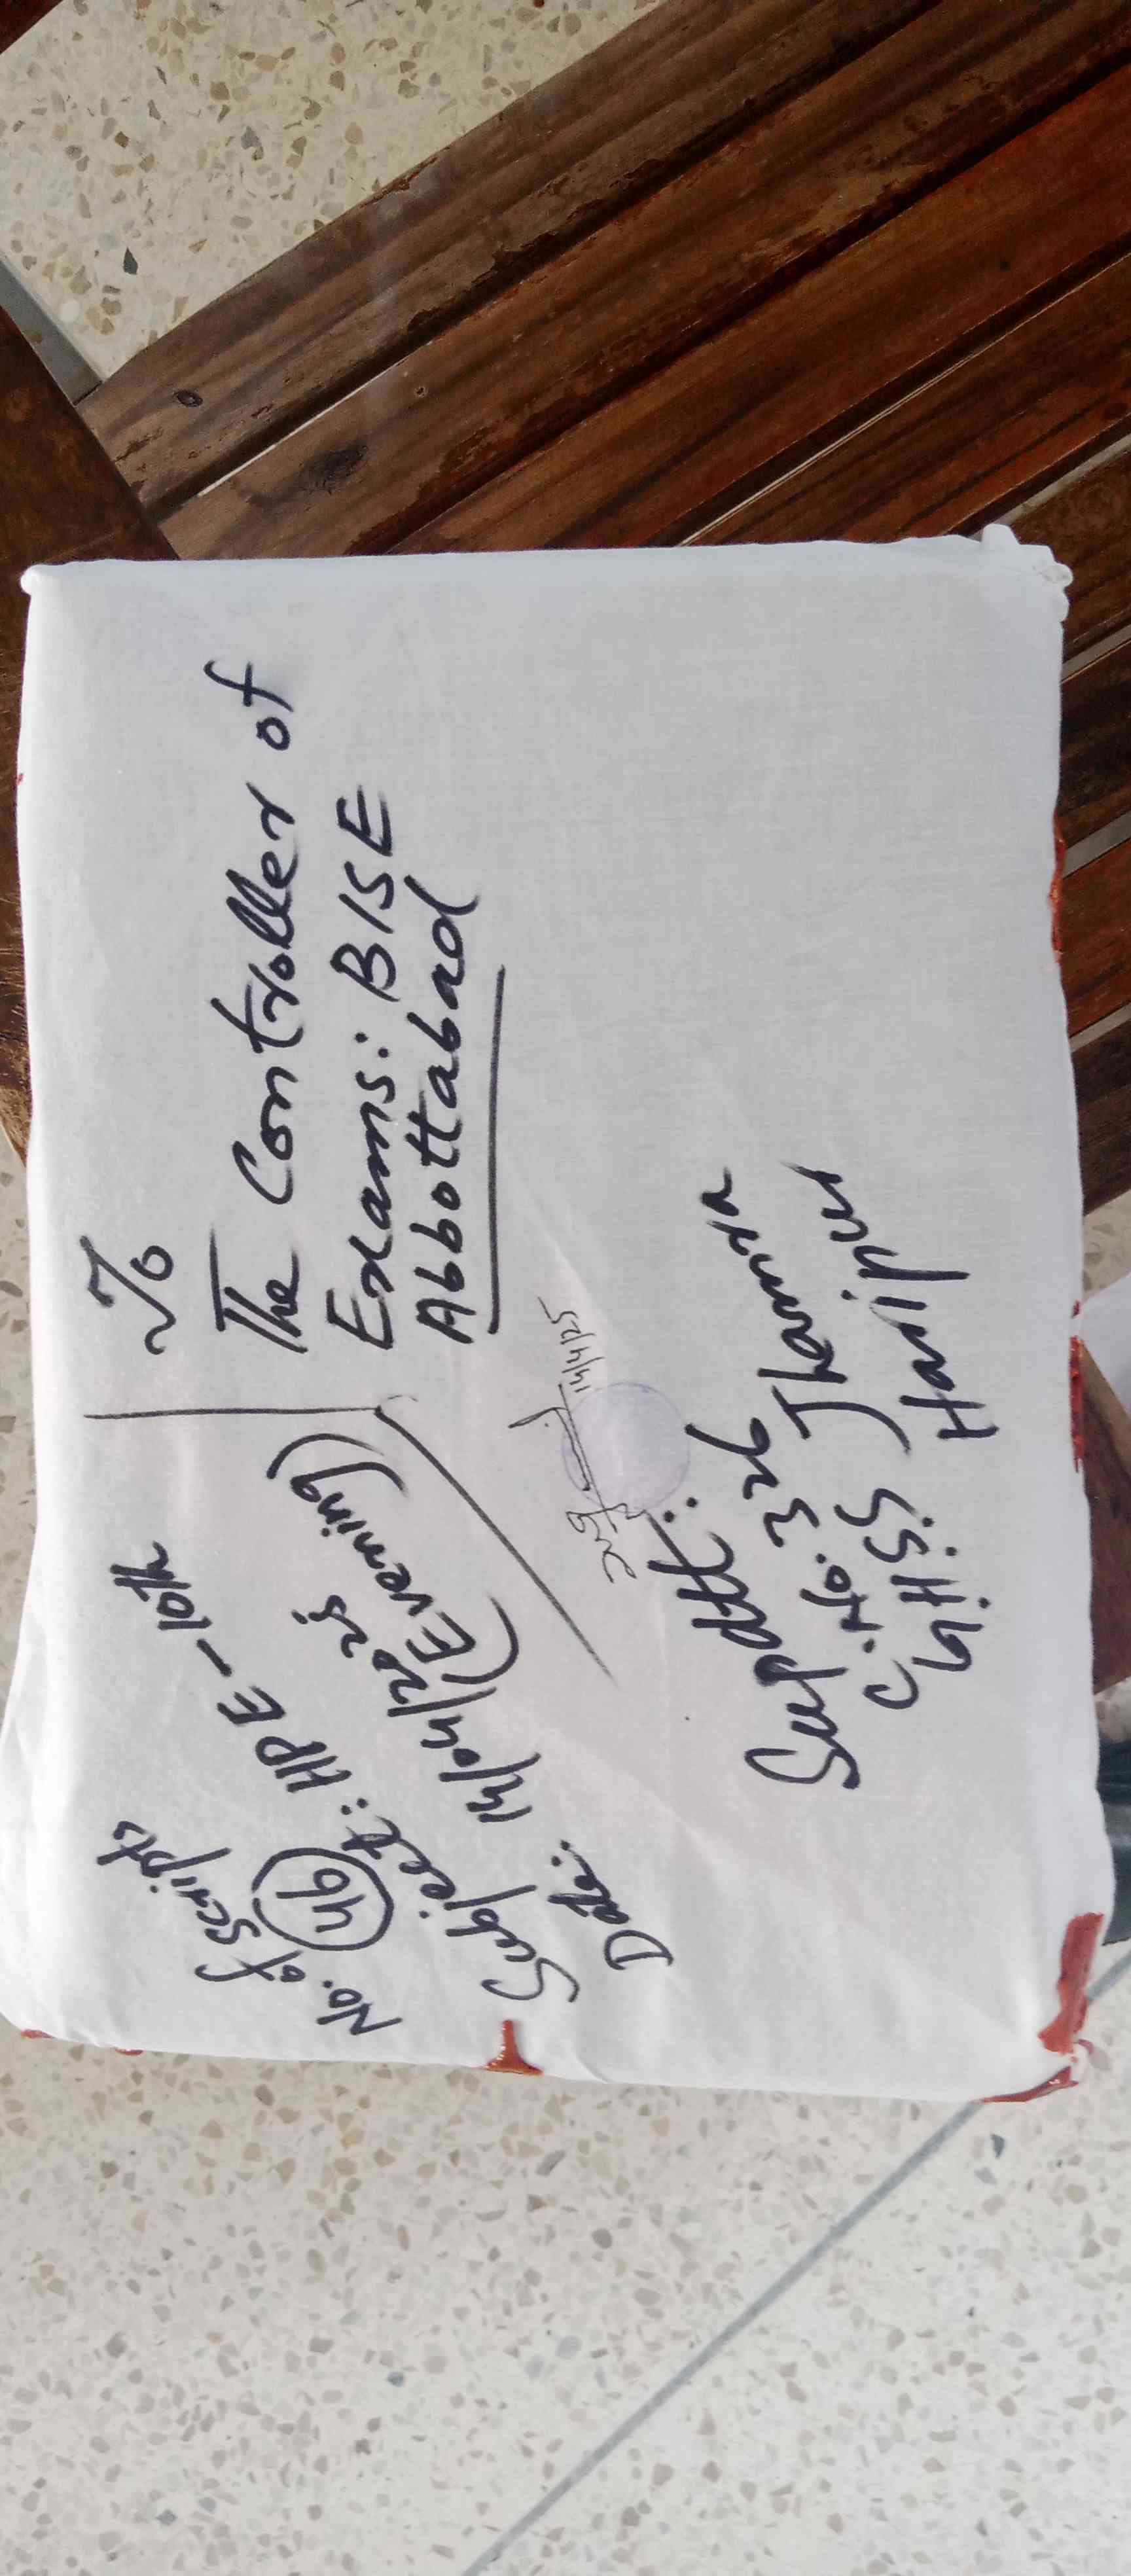 No. of scripts
46
Subject: HPE-10th
Date: 14/04/2025
(Evening)
To
The Controller of
Exams: BISE
Abbottabad
14/4/25
Supdtt:
C.No. 326
GHSS Jhamra
Haripur